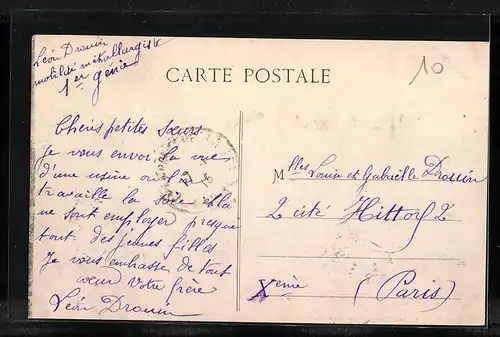 Léon Drouin
mobilisé métallurgiste
1er génie
10
CARTE POSTALE
Chéris petites sœurs
Je vous envoi la vue
d'une usine où l'on
travaille la soie. Là
ne sont employer presque
tout des jeunes filles
Je vous embrasse de tout
cœur Votre frère
Léon Drouin
Mlles Louise et Gabrielle Drouin
2 cité Hittorf 2
Xème (Paris)